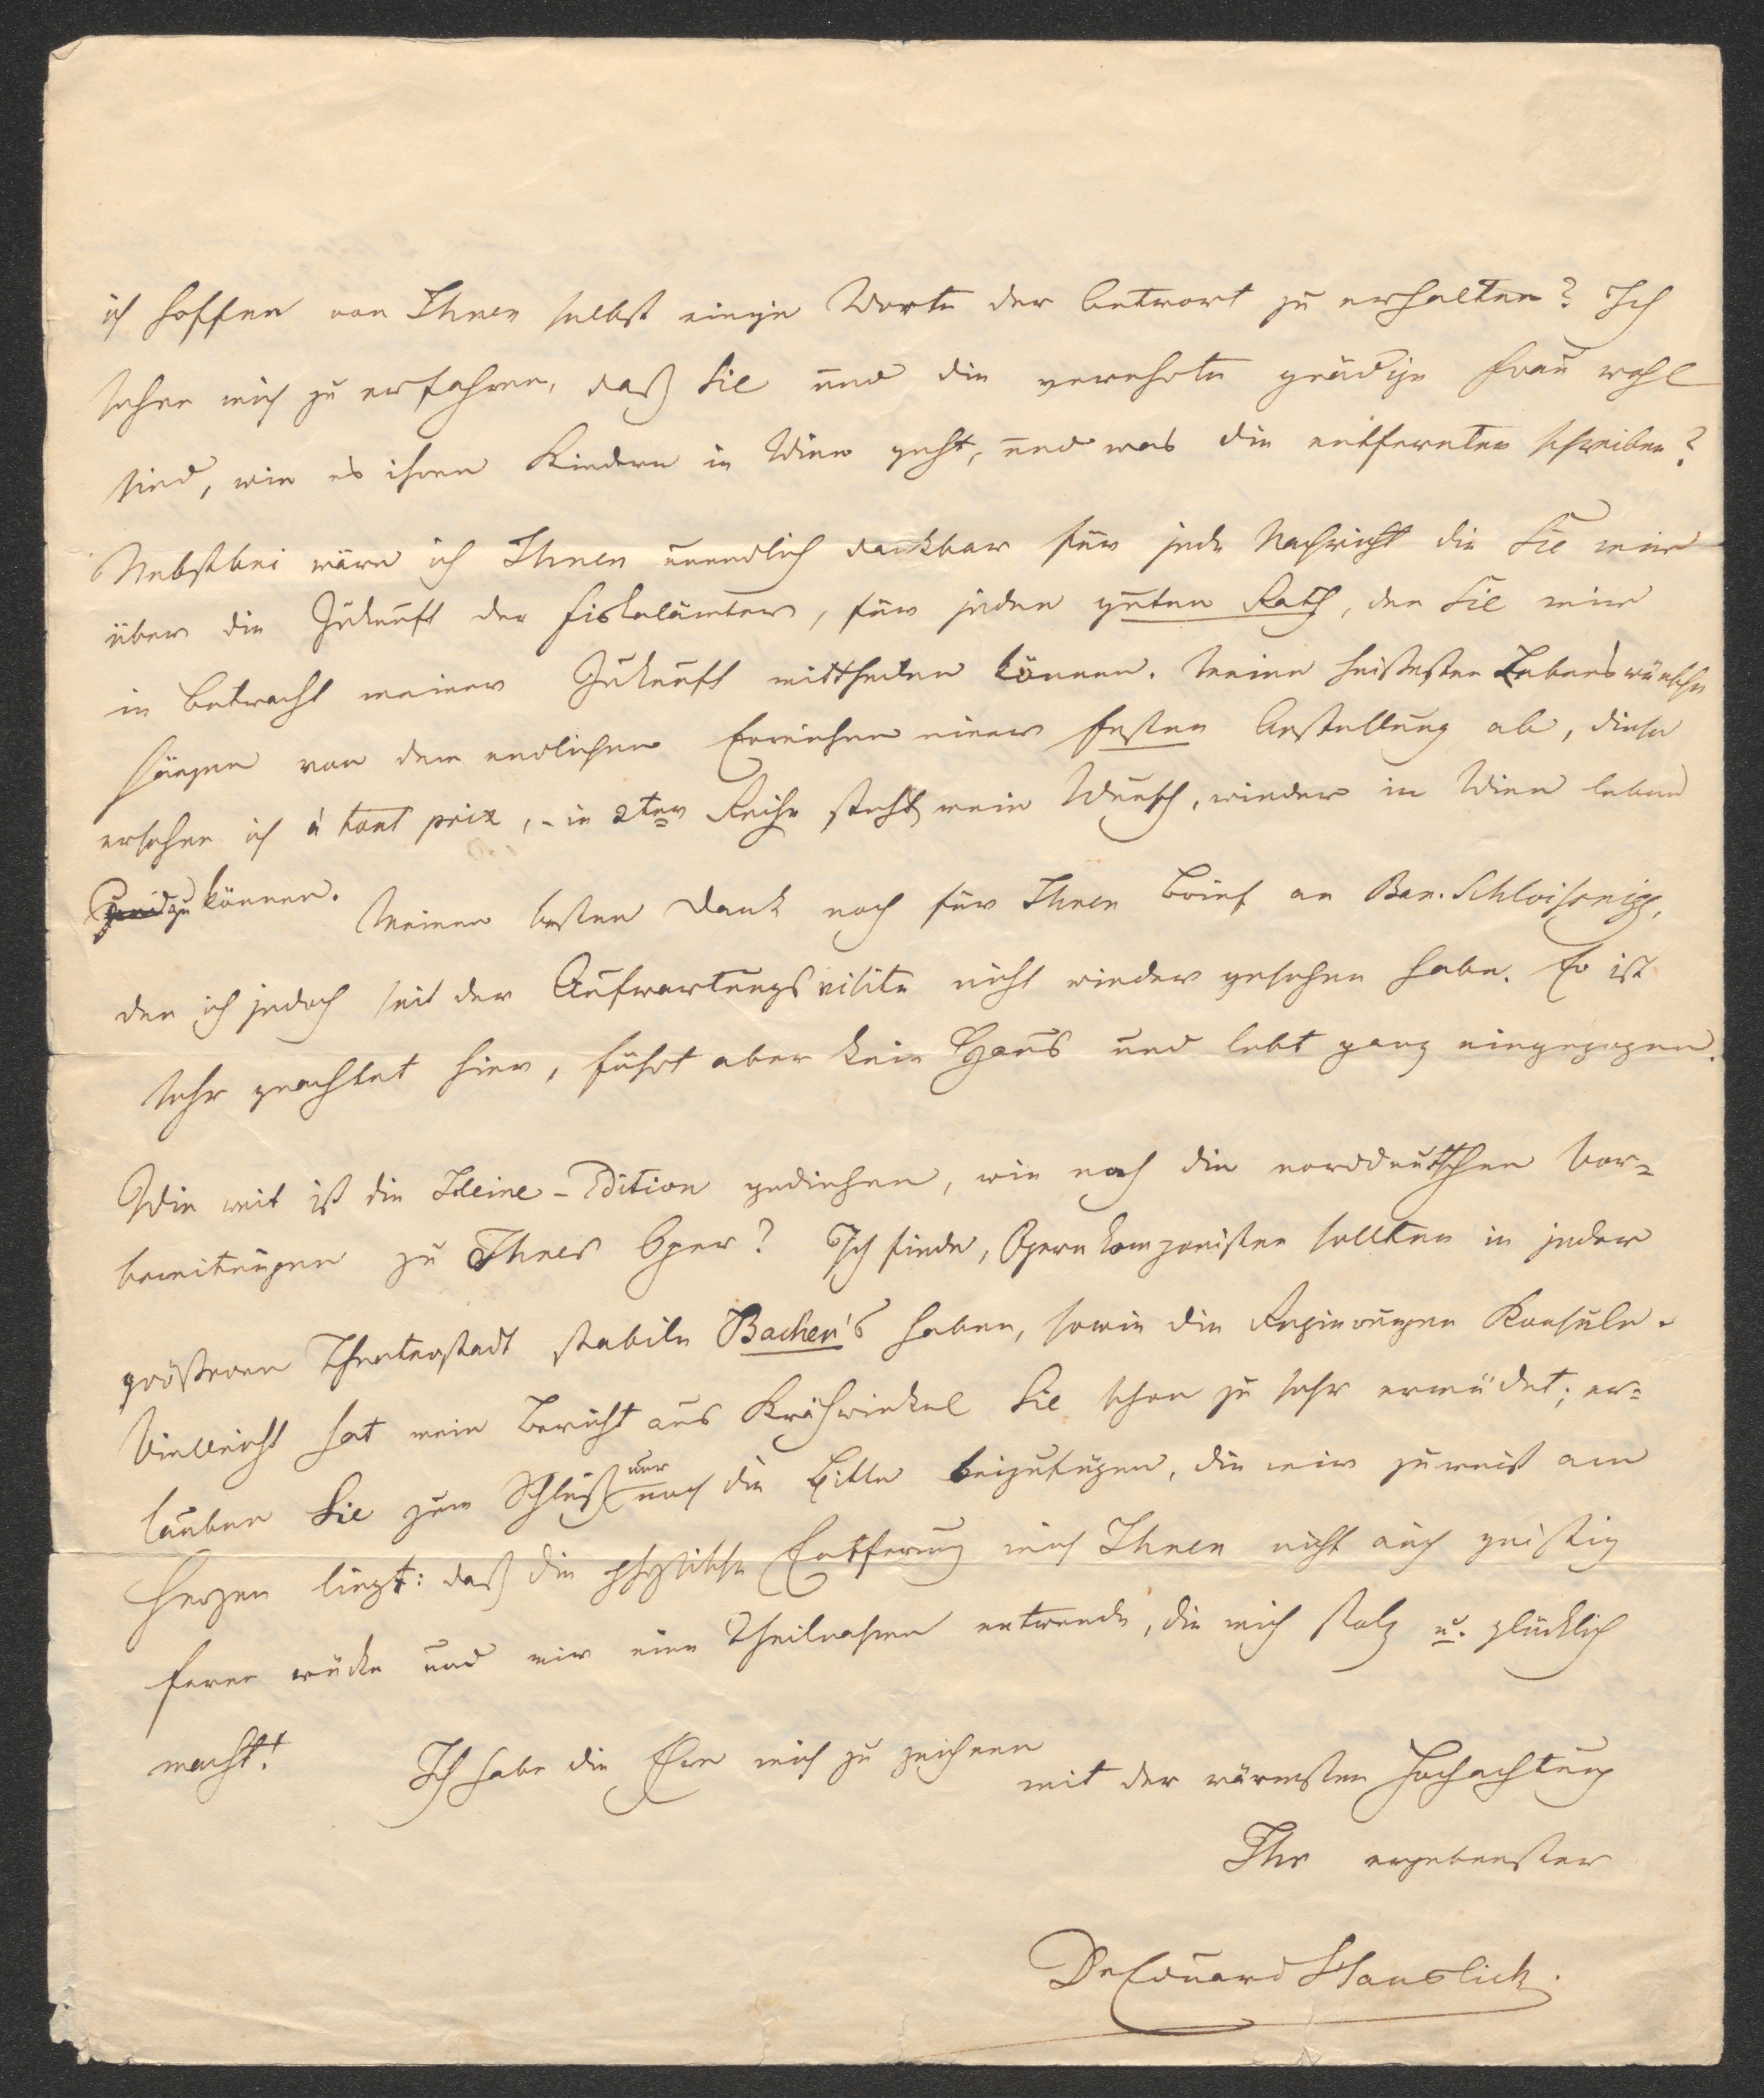 ich hoffen von Ihnen selbst einige Worte der Antwort zu erhalten? Ich
sehne mich zu erfahren, daß Sie und die verehrte gnädige Frau wohl
sind, wie es ihren Kindern in Wien geht, und was die entfernten schreiben?
Nebstbei wäre ich Ihnen unendlich dankbar für jede Nachricht die Sie mir
über die Zukunft der Fiskalämter, für jeden guten Rath, den Sie mir
in Betracht meiner Zukunft mittheilen können. Meine heißesten Lebenswünsche
hängen von dem endlichen Erreichen einer festen Anstellung ab, diese
ersehne ich à tout prix, - in 2ter Reihe steht mein Wunsch, wieder in Wien leben
zu können. Meinen besten Dank noch für Ihren Brief an Bar. Schloißnigg,
den ich jedoch seit der Aufwartungsvisite nicht wieder gesehen habe. Er ist
sehr geachtet hier, führt aber kein Haus und lebt ganz eingezogen.
Wie weit ist die Heine-Edition gediehen, wie noch die norddeutschen Vor=
bereitungen zu Ihrer Oper? Ich finde, Opernkomponisten sollten in jeder
größeren Theaterstadt stabile Bacher's haben, sowie die Regierungen Konsuln.
Vielleicht hat mein Bericht aus Krähwinkel Sie schon zu sehr ermüdet; er=
lauben Sie zum Schluß nur noch die Bitte beizufügen, die mir zumeist am
Herzen liegt: daß die physische Entfernung mich Ihnen nicht auch geistig
ferner rücke und mir eine Theilnahme entwende, die mich stolz u. glücklich
macht! Ich habe die Ehre mich zu zeichnen
mit der wärmsten Hochachtung
Ihr ergebenster
Dr Eduard Hanslick.